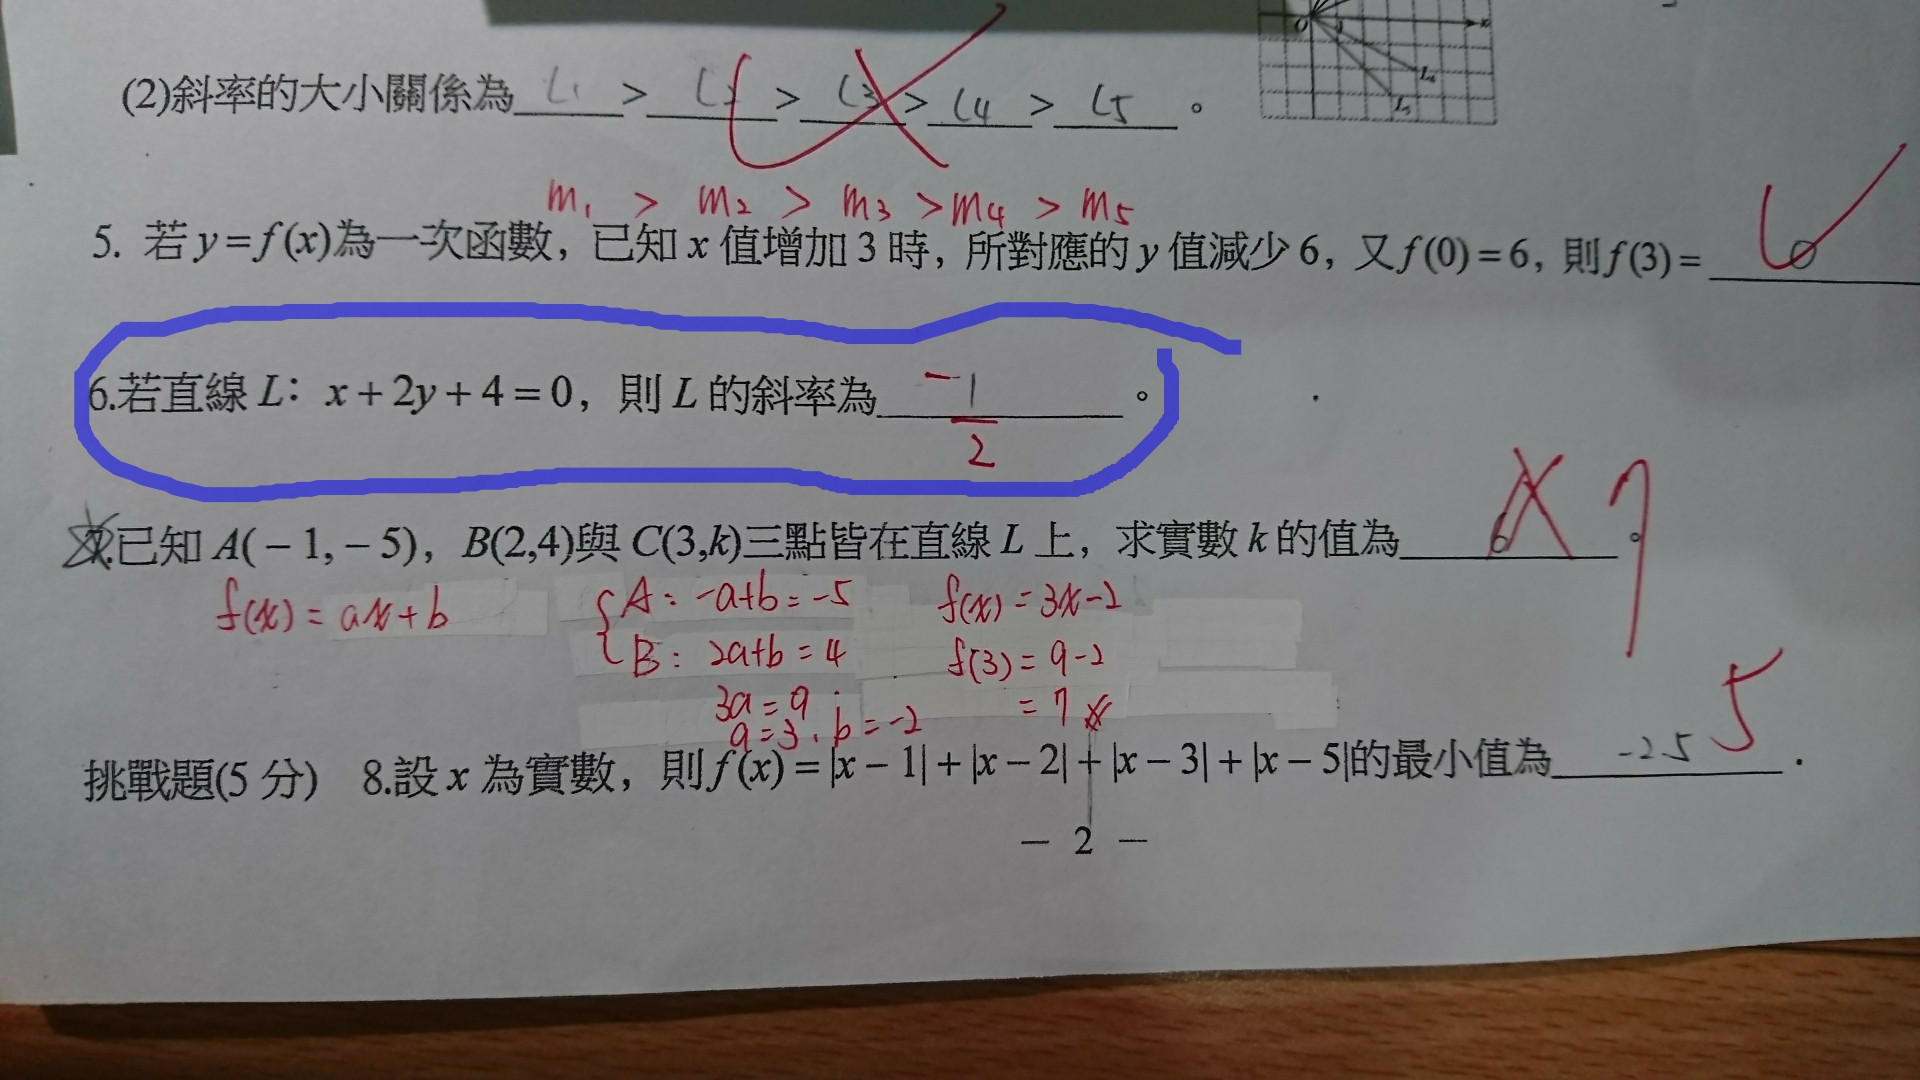 O x
L₄
L₅
(2)斜率的大小關係為 L1 > L2 > L3 > L4 > L5 。
m₁ > m₂ > m₃ > m₄ > m₅
5. 若 y=f(x)為一次函數，已知 x 值增加 3 時，所對應的 y 值減少 6，又 f(0)=6，則 f(3)= 0
6.若直線 L：x+2y+4=0，則 L 的斜率為 -1/2 。
7.已知 A(－1,－5)，B(2,4)與 C(3,k)三點皆在直線 L 上，求實數 k 的值為 6 。 7
f(x)=ax+b { A: -a+b=-5 f(x)=3x-2
B: 2a+b=4 f(3)=9-2
3a=9 =7
a=3, b=-2
挑戰題(5 分) 8.設 x 為實數，則 f(x)=|x－1|+|x－2|+|x－3|+|x－5|的最小值為 -25 . 5
－ 2 －